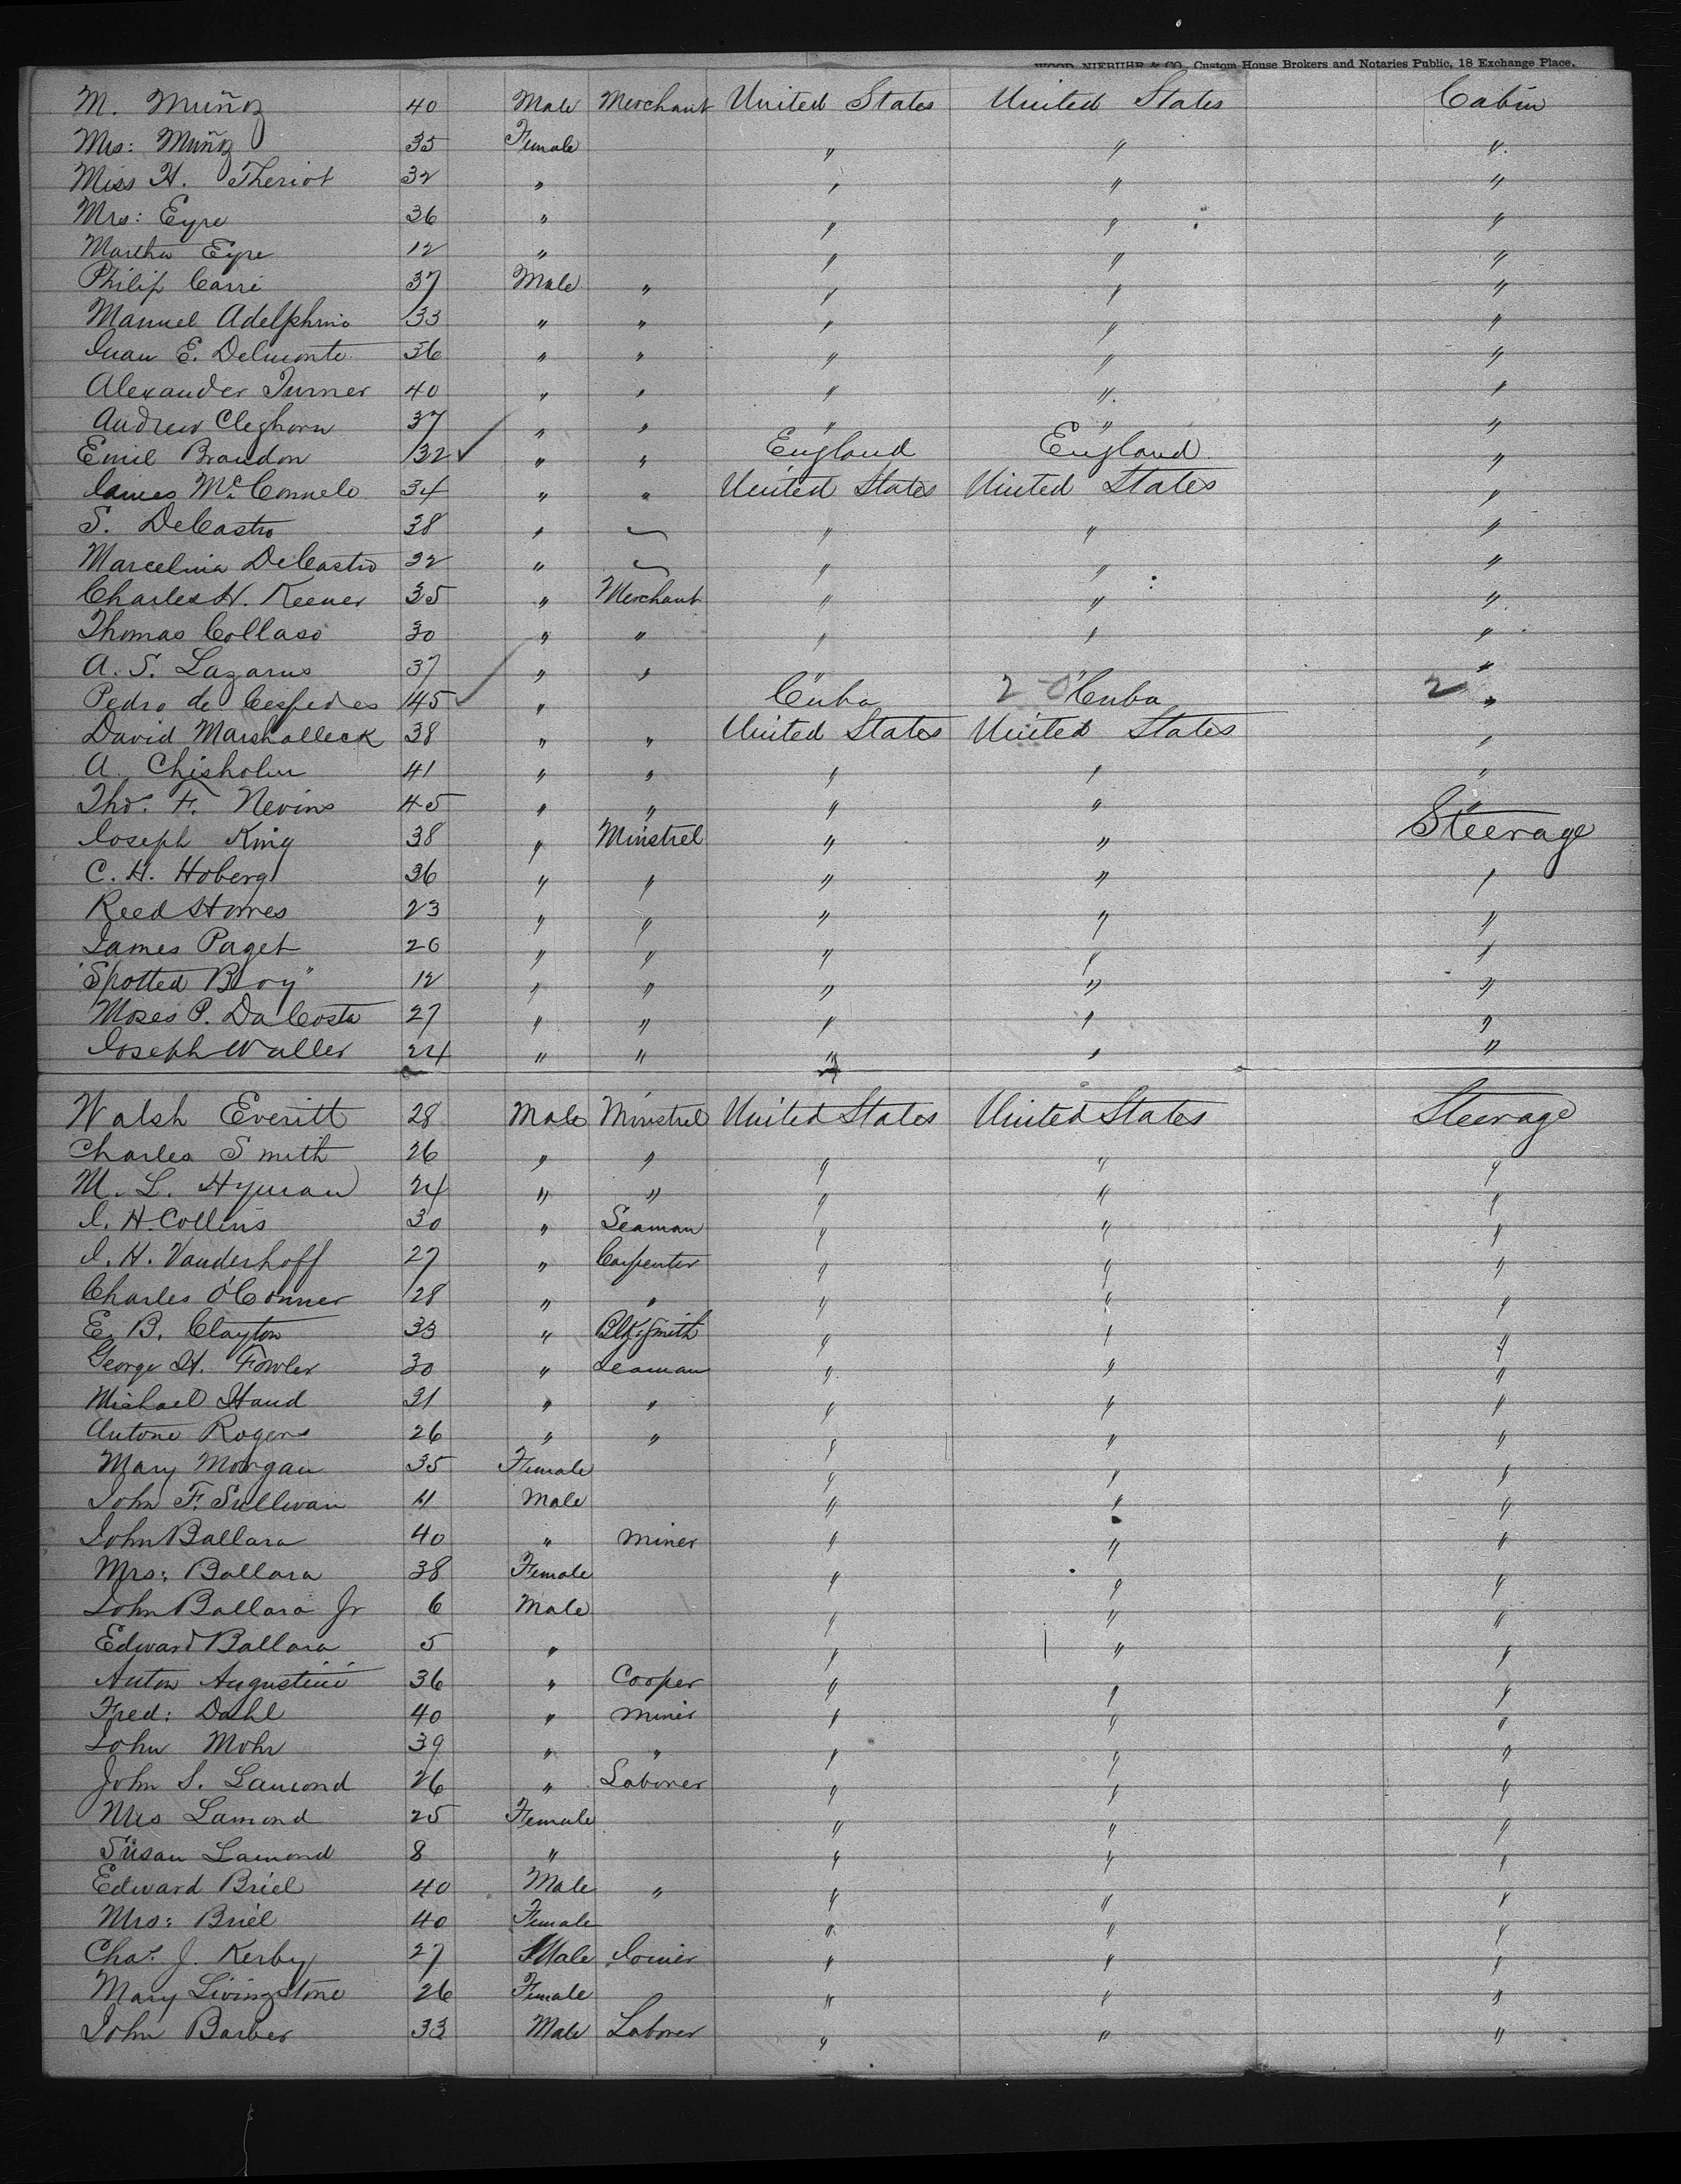 WOOD, NIEBUHR & CO., Custom House Brokers and Notaries Public, 18 Exchange Place.
M. Muñoz 40 Male Merchant United States United States Cabin
Mrs: Muñoz 35 Female " " "
Miss H. Theriot 32 " " " "
Mrs: Eyre 36 " " " "
Martha Eyre 12 " " " "
Philip Carri 37 Male " " " "
Manuel Adelphino 33 " " " " "
Juan E. Delmonte 36 " " " " "
Alexander Turner 40 " " " " "
Andrew Cleghorn 37 " " " " "
Emil Brandon 32 " " England England "
James McConnelo 34 " " United States United States "
S. DeCastro 38 " " " "
Marcelina DeCastro 32 " " " "
Charles H. Keener 35 " Merchant " " "
Thomas Collaso 30 " " " " "
A. S. Lazarus 37 " " " " "
Pedro de Cespedes 45 " Cuba 2 Cuba 2 "
David Marshalleck 38 " " United States United States "
A. Chisholm 41 " " " " "
Thos. F. Nevins 45 " " " " "
Joseph King 38 " Minstrel " " Steerage
C. H. Hoberg 36 " " " " "
Reed Homes 23 " " " " "
James Paget 26 " " " " "
"Spotted Boy" 12 " " " " "
Moses P. DaCosta 27 " " " " "
Joseph Waller 24 " " " " "
Walsh Everitt 28 Male Minstrel United States United States Steerage
Charles Smith 26 " " " " "
M. L. Hyman 24 " " " " "
J. H Collins 30 " Seaman " " "
J. H. Vanderhoff 27 " Carpenter " " "
Charles O'Conner 28 " " " " "
E. B. Clayton 33 " Blk.smith " " "
George H. Fowler 30 " Seaman " " "
Michael Hand 31 " " " " "
Antone Rogers 26 " " " " "
Mary Morgan 35 Female " " "
John F. Sullivan 11 Male " " "
John Ballara 40 " Miner " " "
Mrs: Ballara 38 Female " " "
John Ballara Jr 6 Male " " "
Edward Ballara 5 " " " "
Anton Augustini 36 " Cooper " " "
Fred: Dahl 40 " Miner " " "
John Mohr 39 " " " " "
John S. Lamond 26 " Laborer " " "
Mrs Lamond 25 Female " " "
Susan Lamond 8 " " " "
Edward Briel 40 Male " " " "
Mrs: Briel 40 Female " " "
Chas. J. Kerby 27 Male Joiner " " "
Mary Livingstone 26 Female " " "
John Barber 33 Male Laborer " " "